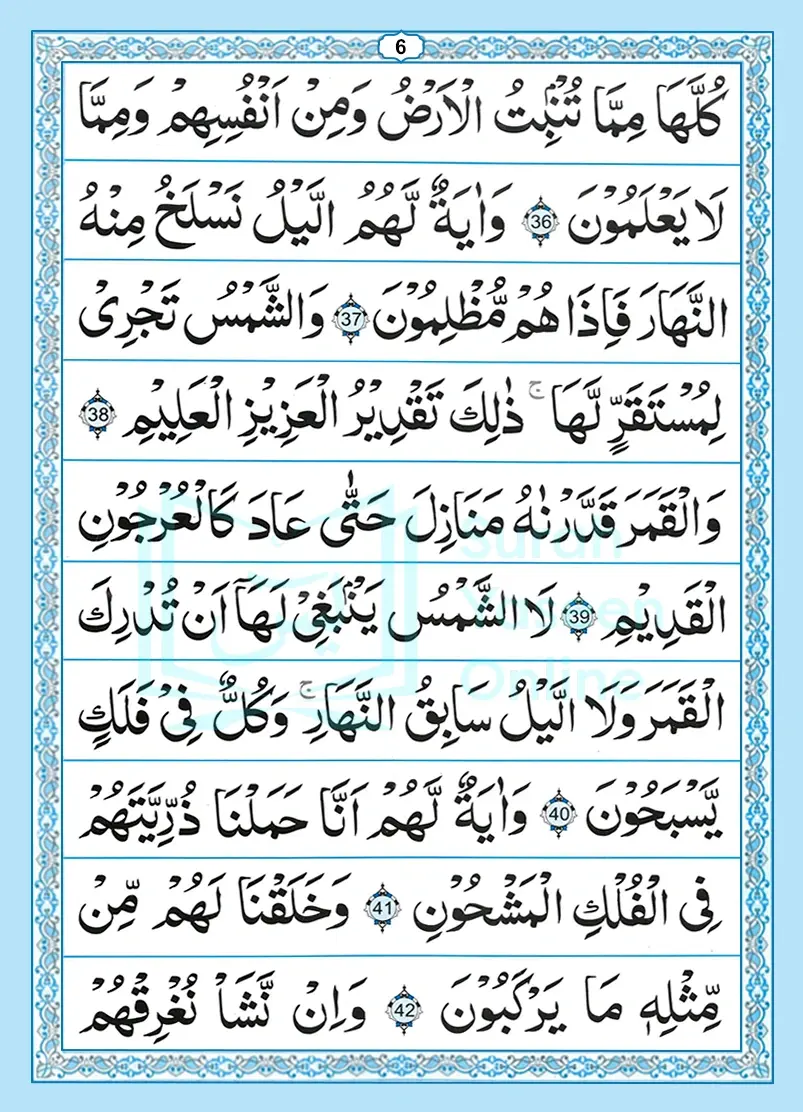 6
كُلَّهَا مِمَّا تُنْۢبِتُ الْاَرْضُ وَمِنْ اَنْفُسِهِمْ وَمِمَّا
لَا يَعْلَمُوْنَ 36 وَاٰيَةٌ لَّهُمُ الَّيْلُ نَسْلَخُ مِنْهُ
النَّهَارَ فَاِذَا هُمْ مُّظْلِمُوْنَ 37 وَالشَّمْسُ تَجْرِىْ
لِمُسْتَقَرٍّ لَّهَا ۚ ذٰلِكَ تَقْدِيْرُ الْعَزِيْزِ الْعَلِيْمِ 38
وَالْقَمَرَ قَدَّرْنٰهُ مَنَازِلَ حَتّٰى عَادَ كَالْعُرْجُوْنِ
الْقَدِيْمِ 39 لَا الشَّمْسُ يَنْۢبَغِىْ لَهَاۤ اَنْ تُدْرِكَ
الْقَمَرَ وَلَا الَّيْلُ سَابِقُ النَّهَارِ ۚ وَكُلٌّ فِىْ فَلَكٍ
يَّسْبَحُوْنَ 40 وَاٰيَةٌ لَّهُمْ اَنَّا حَمَلْنَا ذُرِّيَّتَهُمْ
فِى الْفُلْكِ الْمَشْحُوْنِ 41 وَخَلَقْنَا لَهُمْ مِّنْ
مِّثْلِهٖ مَا يَرْكَبُوْنَ 42 وَاِنْ نَّشَاْ نُغْرِقْهُمْ
Surah
Yaseen
Online